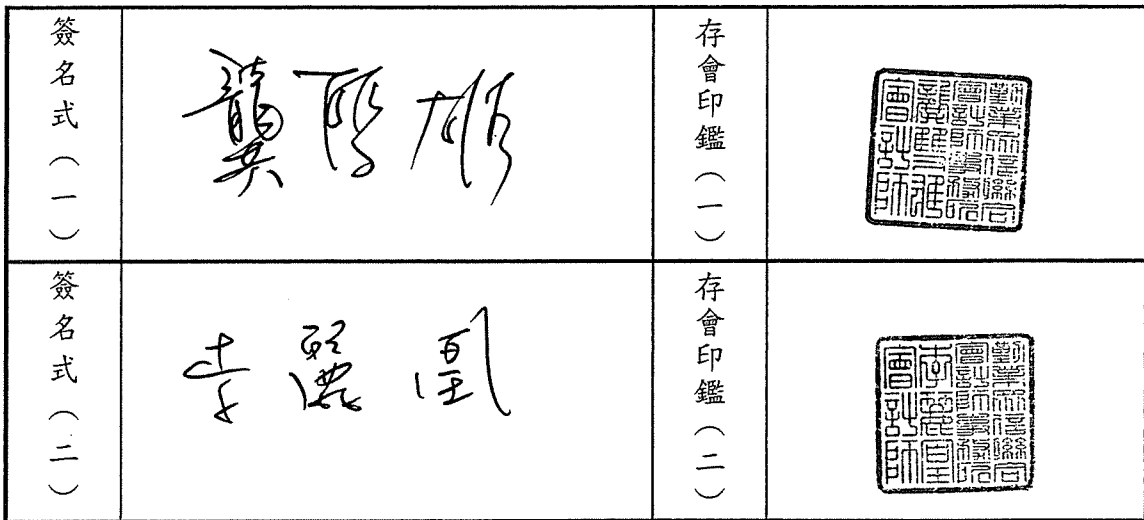 簽名式（一）
龔雙雄
存會印鑑（一）
勤業眾信聯合
會計師事務所
龔雙雄
會計師
簽名式（二）
李麗凰
存會印鑑（二）
勤業眾信聯合
會計師事務所
李麗凰
會計師